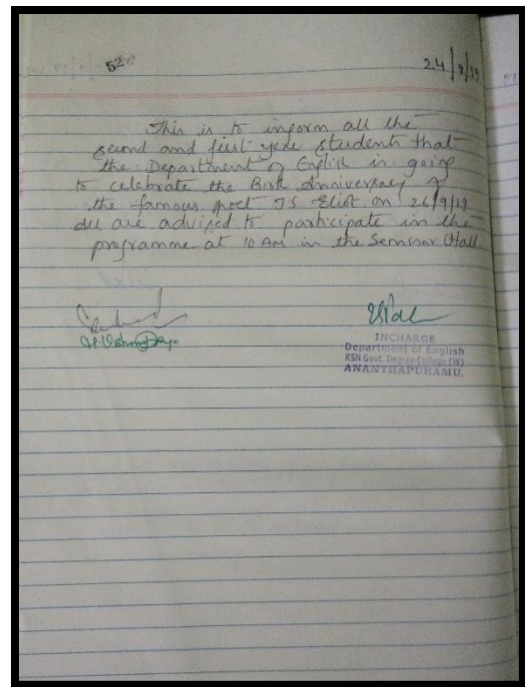 52
24/9/19
This is to inform all the
second and first year students that
the Department of English is going
to celebrate the Birth Anniversary of
the famous poet TS Eliot on 26/9/19
All are advised to participate in the
programme at 10 AM in the Seminar Hall.
INCHARGE
Department of English
KSN Govt. Degree College (W)
ANANTHAPURAMU.